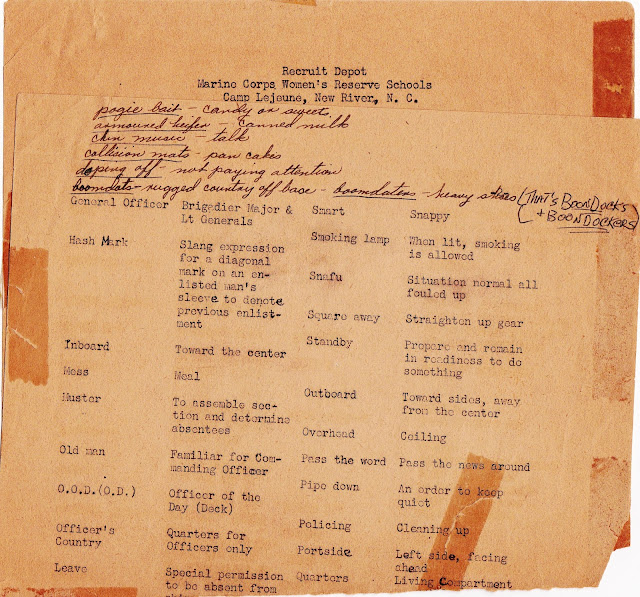 Recruit Depot
Marine Corps Women's Reserve Schools
Camp Lejeune, New River, N. C.
pogie bait - candy or sweet,
armoured heifer - canned milk
chin music - talk
collision mats - pan cakes
doping off - not paying attention
boomdots - rugged country off base - boomdaters - heavy shoes (THAT'S BOONDOCKS
+ BOONDOCKERS)
General Officer Brigadier Major &
Lt Generals
Hash Mark Slang expression
for a diagonal
mark on an en-
listed man's
sleeve to denote
previous enlist-
ment
Inboard Toward the center
Mess Meal
Muster To assemble sec-
tion and determine
absentees
Old man Familiar for Com-
manding Officer
O.O.D.(O.D.) Officer of the
Day (Deck)
Officer's Quarters for
Country Officers only
Leave Special permission
to be absent from
Smart Snappy
Smoking lamp When lit, smoking
is allowed
Snafu Situation normal all
fouled up
Square away Straighten up gear
Standby Prepare and remain
in readiness to do
something
Outboard Toward sides, away
from the center
Overhead Ceiling
Pass the word Pass the news around
Pipe down An order to keep
quiet
Policing Cleaning up
Portside Left side, facing
ahead
Quarters Living Compartment